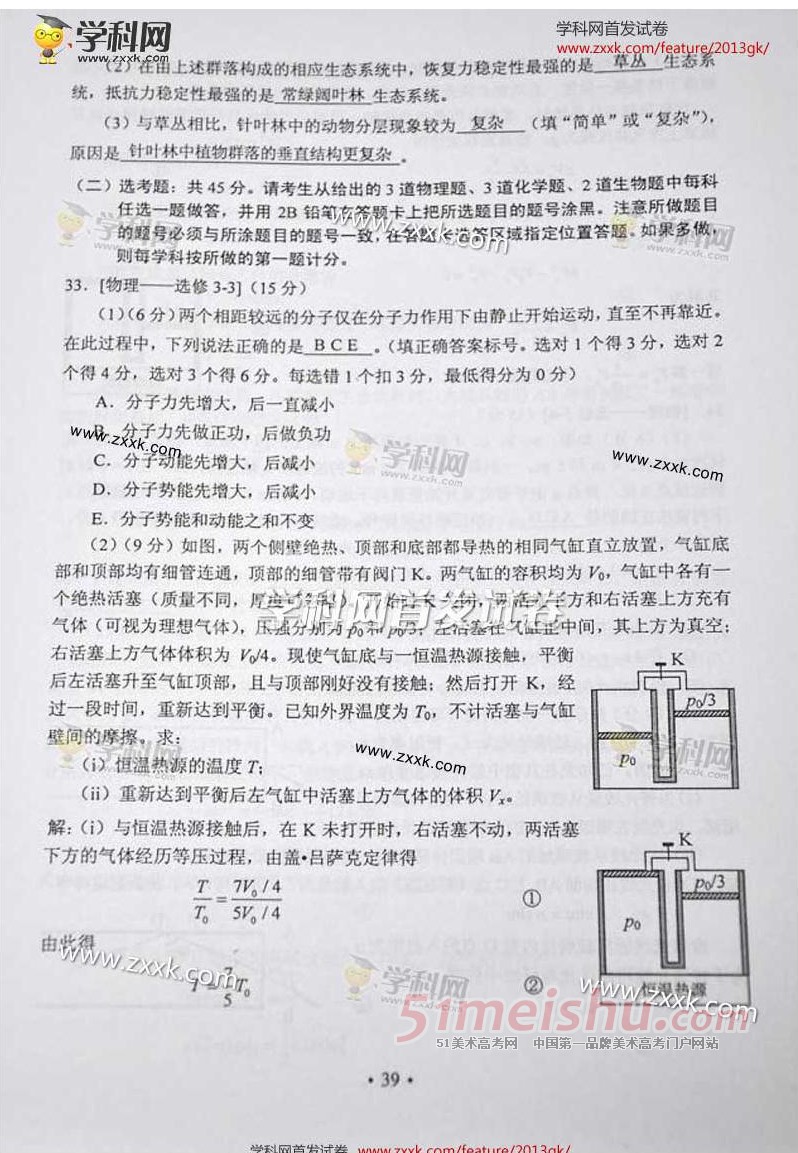 学科网
zxxk.com
学科网首发试卷
www.zxxk.com/feature/2013gk/
(2)在由上述群落构成的相应生态系统中，恢复力稳定性最强的是 草丛 生态系
统，抵抗力稳定性最强的是 常绿阔叶林 生态系统。
(3)与草丛相比，针叶林中的动物分层现象较为 复杂 (填“简单”或“复杂”)，
原因是 针叶林中植物群落的垂直结构更复杂 。
(二)选考题：共 45 分。请考生从给出的 3 道物理题、3 道化学题、2 道生物题中每科
任选一题做答，并用 2B 铅笔在答题卡上把所选题目的题号涂黑。注意所做题目
的题号必须与所涂题目的题号一致，在答题卡选答区域指定位置答题。如果多做，
则每学科按所做的第一题计分。
33．[物理——选修 3-3]（15 分）
(1)(6 分)两个相距较远的分子仅在分子力作用下由静止开始运动，直至不再靠近。
在此过程中，下列说法正确的是 B C E 。(填正确答案标号。选对 1 个得 3 分，选对 2
个得 4 分，选对 3 个得 6 分。每选错 1 个扣 3 分，最低得分为 0 分)
A．分子力先增大，后一直减小
B．分子力先做正功，后做负功
www.zxxk.com
学科网
zxxk.com
www.zxxk.com
C．分子动能先增大，后减小
D．分子势能先增大，后减小
E．分子势能和动能之和不变
(2)(9 分)如图，两个侧壁绝热、顶部和底部都导热的相同气缸直立放置，气缸底
部和顶部均有细管连通，顶部的细管带有阀门 K。两气缸的容积均为 V₀，气缸中各有一
个绝热活塞（质量不同，厚度可忽略）。开始时 K 关闭，两活塞下方和右活塞上方充有
学科网首发试卷
气体（可视为理想气体），压强分别为 p₀ 和 p₀/3；左活塞在气缸正中间，其上方为真空；
右活塞上方气体体积为 V₀/4。现使气缸底与一恒温热源接触，平衡
后左活塞升至气缸顶部，且与顶部刚好没有接触；然后打开 K，经
过一段时间，重新达到平衡。已知外界温度为 T₀，不计活塞与气缸
壁间的摩擦。求：
K
p₀/3
p₀
(i) 恒温热源的温度 T；
www.zxxk.com
(ii) 重新达到平衡后左气缸中活塞上方气体的体积 Vₓ。
解：(i) 与恒温热源接触后，在 K 未打开时，右活塞不动，两活塞
下方的气体经历等压过程，由盖•吕萨克定律得
T/T₀ = (7V₀/4)/(5V₀/4) ①
由此得
www.zxxk.com
T = 7/5 T₀ ②
K
p₀/3
p₀
恒温热源
www.zxxk.com
学科网
zxxk.com
51meishu.com
51美术高考网 中国第一品牌美术高考门户网站
• 39 •
学科网首发试卷 www.zxxk.com/feature/2013gk/